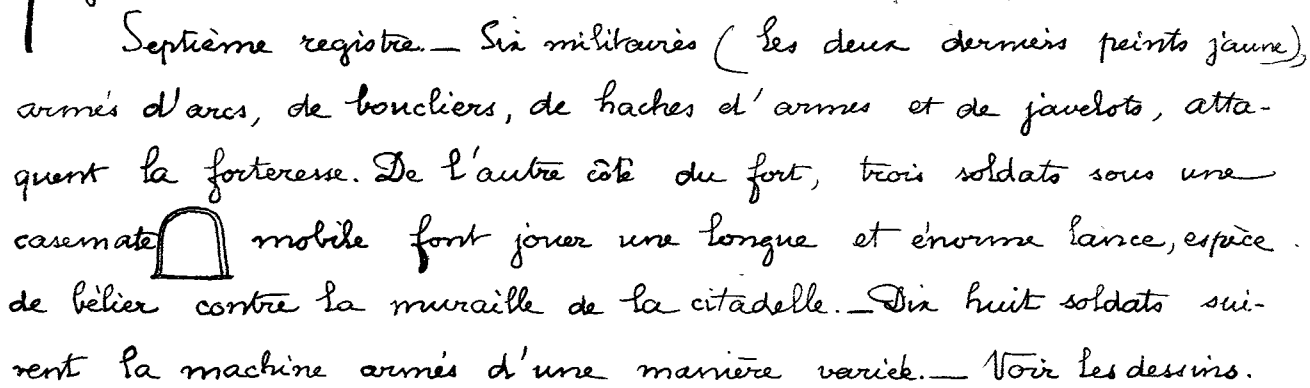 Septième registre. — Six militaires (les deux derniers peints jaune),
armés d'arcs, de boucliers, de haches d'armes et de javelots, atta-
quent la forteresse. De l'autre côté du fort, trois soldats sous une
casemate mobile font jouer une longue et énorme lance, espèce
de bélier contre la muraille de la citadelle. — Dix huit soldats sui-
vent la machine armés d'une manière variée. — Voir les dessins.